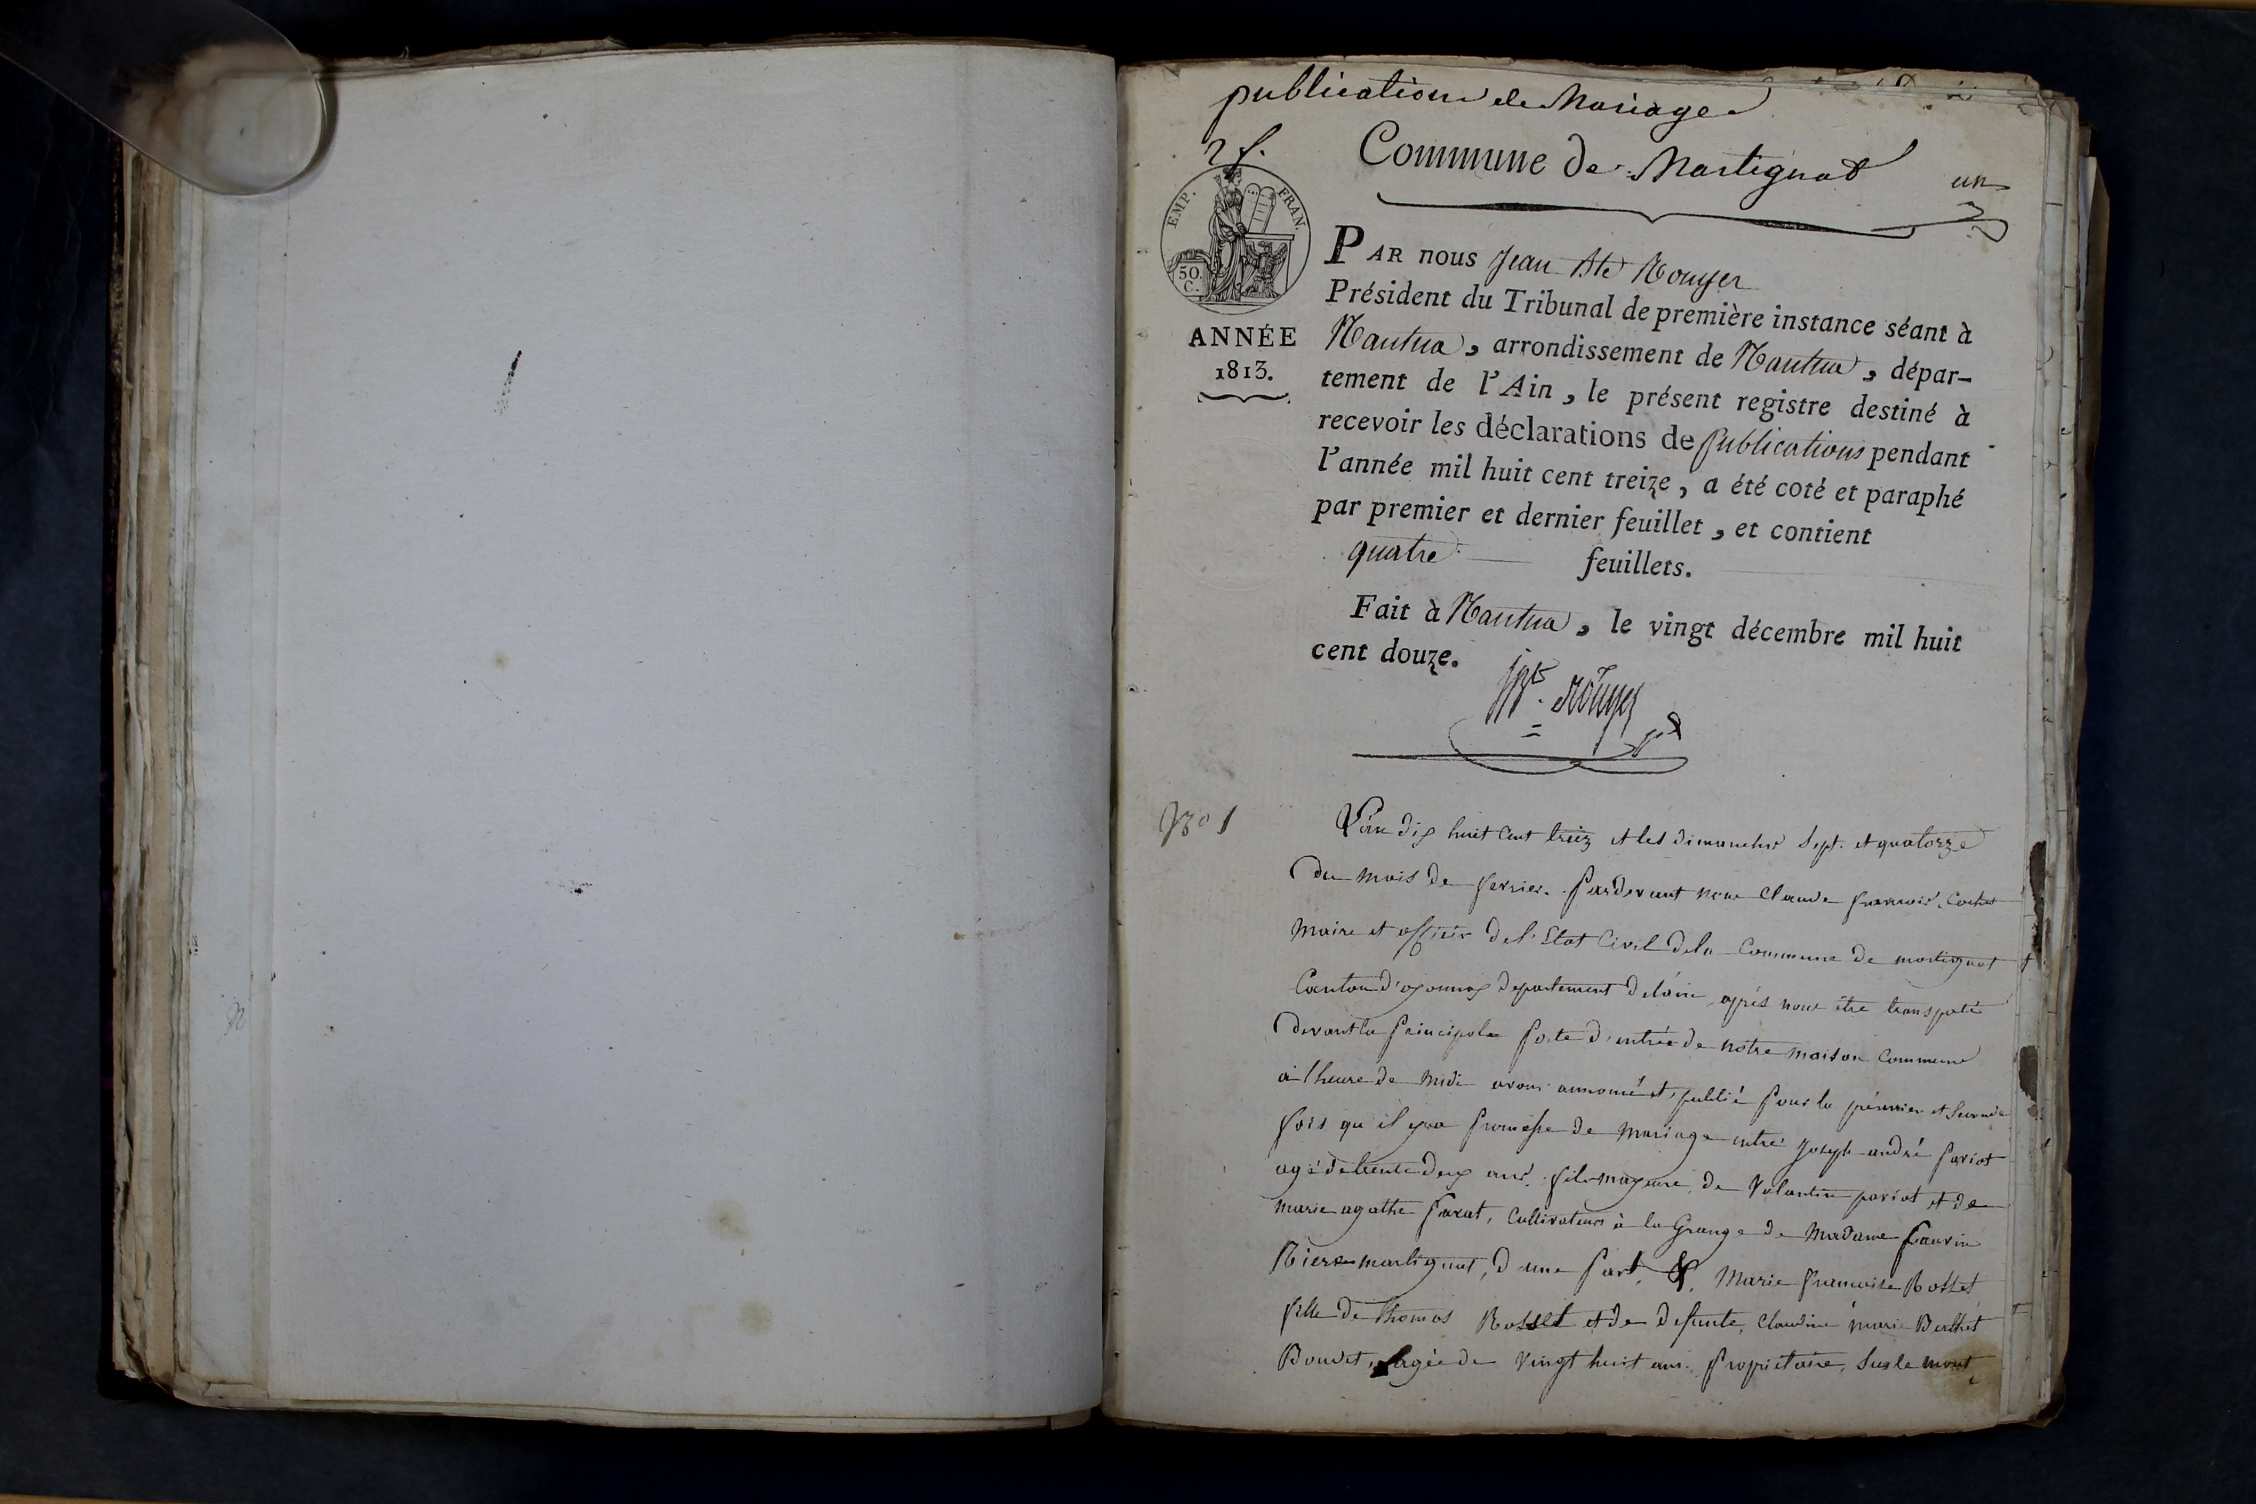 publication de Mariage
2 f.
Commune de Martignat
un
EMP. FRAN.
50.
C.
ANNÉE
1813.
PAR nous Jean Bte Rouyer
Président du Tribunal de première instance séant à
Nantua, arrondissement de Nantua, dépar-
tement de l'Ain, le présent registre destiné à
recevoir les déclarations de publications pendant
l'année mil huit cent treize, a été coté et paraphé
par premier et dernier feuillet, et contient
quatre feuillets.
Fait à Nantua, le vingt décembre mil huit
cent douze.
JBte Rouyer
No 1
L'an dix huit cent treiz et les dimanches sept et quatorze
du mois de fevrier. Pardevant nous Claude francois Cochet
Maire et officier de l'Etat Civil de la Commune de martignat
Canton d'oyonnax departement de lain, après nous être transporté
devant la principale porte d'entrée de notre maison Commune
à l'heure de midi avons annoncé et publié pour la premier et seconde
fois qu'il y a promesse de mariage entre Joseph andré pariot
agé de trente deux ans, fils mayeure, de Valantin pariot et de
marie agathe, Cultivateurs à la Grange de Madame
martignat, d'une part, &, Marie francoise Rosset
fille de thomas Rosset et de defunte, Claudine marie Berthet
Boudet, agée de vingt huit ans, proprietaire, sur le mont,